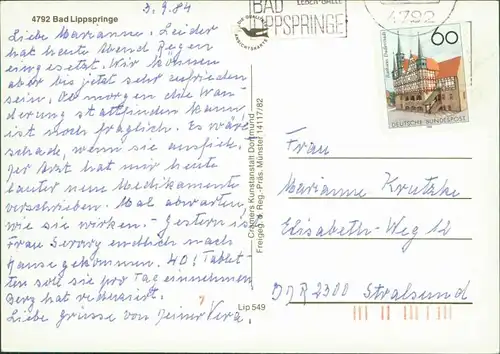 4792 Bad Lippspringe
3.9.84
Liebe Marianne. Leider
hat heute Abend Regen
eingesetzt. Wir können
aber bis jetzt sehr zufrieden
sein. Ob morgen die Wan-
derung stattfinden kann,
ist noch fraglich. Es wäre
schade, wenn sie ausfiele.
Der Arzt hat mir heute
lauter neue Medikamente
verschrieben. Mal abwarten,
wie sie wirken. Gestern ist
Frau endlich nach
Hause gekommen. 40! Tablet-
ten soll sie pro Tag einnehmen
Liebe Grüsse von Deiner Vera.
Cekades Kunstanstalt Dortmund
Freigeg. d. Reg.-Präs. Münster 14117/82
Lip 549
BAD
LIPPSPRINGE
4792
60
DEUTSCHE BUNDESPOST
Frau
Marianne Krutzke
Elisabeth-Weg 12
DDR 2300 Stralsund